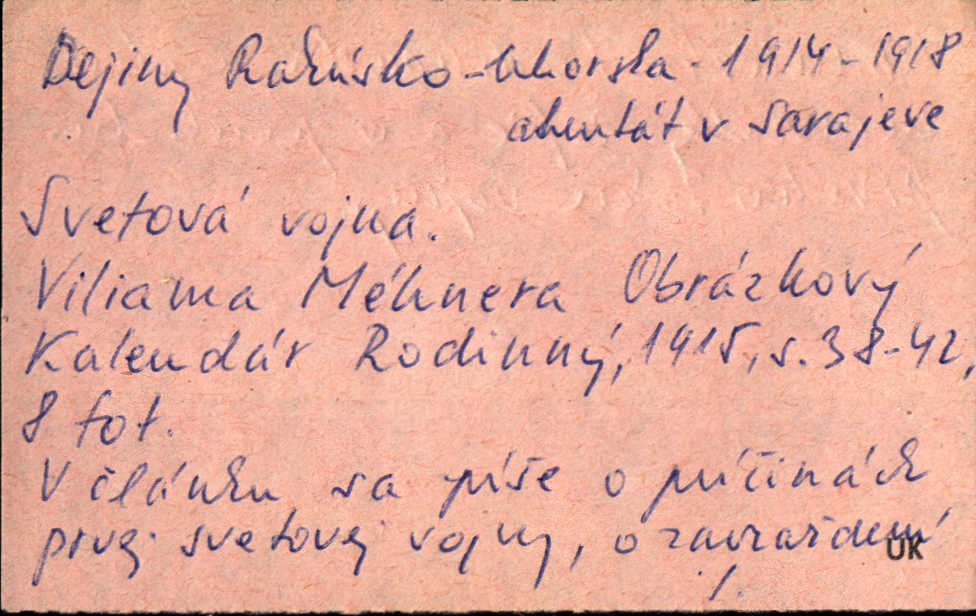 Dejiny Rakúsko-Uhorska - 1914-1918
atentát v Sarajeve
Svetová vojna.
Viliama Méhnera Obrázkový
Kalendár Rodinný, 1915, s. 38-42,
8 fot.
V článku sa píše o príčinách
prvej svetovej vojny, o zavraždení
UK